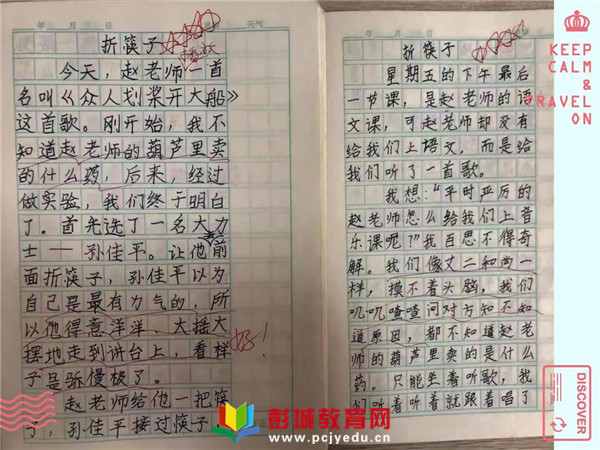 年 月 日 天气
折筷子
今天，赵老师一首
名叫《众人划桨开大船》
这首歌。刚开始，我不
知道赵老师的葫芦里卖
的什么药，后来，经过
做实验，我们终于明白
了。首先选了一名大力
士——孙佳平。让他前
面折筷子，孙佳平以为
自己是最有力气的，所
以他得意洋洋，大摇大
摆地走到讲台上，看样
子呈骄慢极了。
赵老师给他一把筷
子，孙佳平接过筷子，
好！
年 月 日
折筷子
星期五的下午最后
一节课，是赵老师的语
文课，可赵老师却没有
给我们上语文，而是给
我们听了一首歌。
我想："平时严厉的
赵老师怎么给我们上音
乐课呢？"我百思不得奇
解。我们像丈二和尚一
样，摸不着头脑，我们
叽叽喳喳问对方知不知
道原因，都不知道赵老
师的葫芦里卖的是什么
药。只能坐着听歌，我
们听着听着就跟着唱了
KEEP
CALM
&
TRAVEL
ON
DISCOVER
彭城教育网
www.pcjyedu.cn